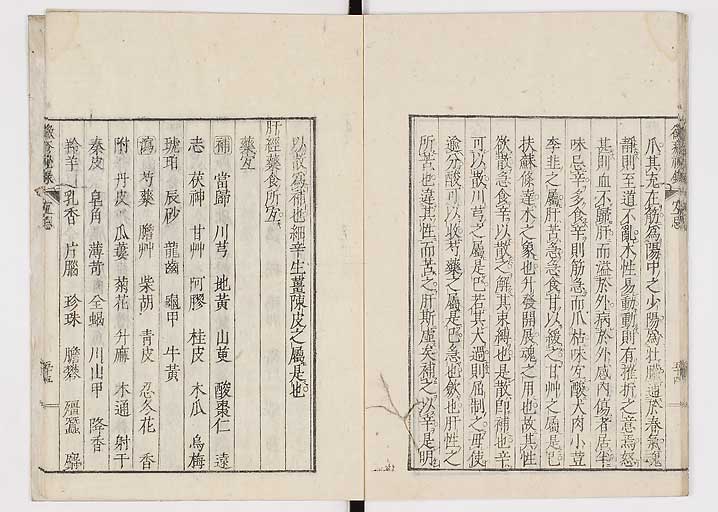 爪其充在筋爲陽中之少陽爲壯臟通於春氣魂
靜則至道不亂木性易動動則有摧折之意焉怒
甚則血不臟肝而溢於外病於外感內傷者居半
味忌辛多食辛則筋急而爪枯味宜酸犬肉小荳
李韭之屬肝苦急急食甘以緩之甘艸之屬是巴
扶蘇條達木之象也升發開展魂之用也故其性
欲散急食辛以散之解其束縛也是散卽補也辛
可以散川芎之屬是巴若其太過則屈制之毋使
逾分酸可以收芍藥之屬是巴急也斂也肝性之
所苦也違其性而苦之肝斯虛矣補之以辛是明
以散爲補也細辛生薑陳皮之屬是也
肝經藥食所宜
藥宜
補 當歸 川芎 地黃 山茰 酸棗仁 遠
志 茯神 甘艸 阿膠 桂皮 木瓜 烏梅
琥珀 辰砂 龍齒 龜甲 牛黃
瀉 芍藥 膽艸 柴胡 青皮 忍冬花 香
附 丹皮 瓜蔞 菊花 升麻 木通 射干
秦皮 皂角 薄苛 全蝎 川山甲 降香
羚羊 乳香 片腦 珍珠 膽礬 殭蠶